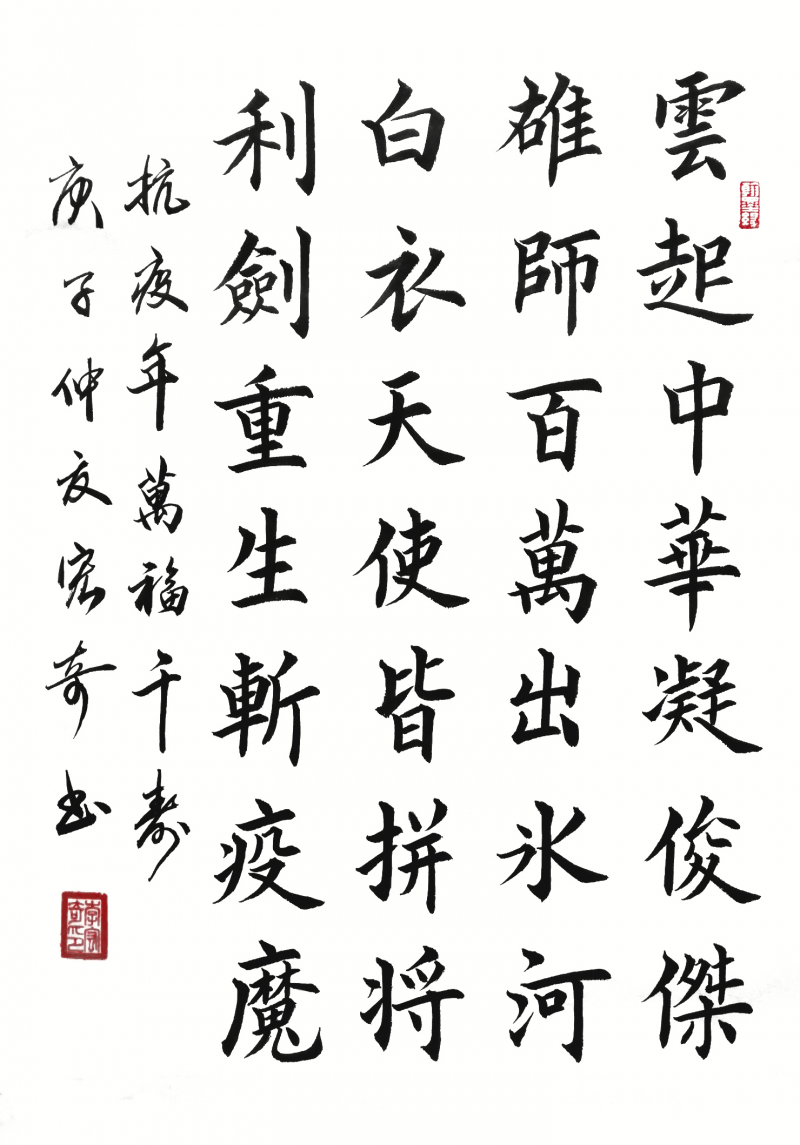 雲起中華凝俊傑
雄師百萬出氷河
白衣天使皆拼将
利劍重生斬疫魔
抗疫年萬福千寿
庚子仲夏宏奇书
李宏奇印